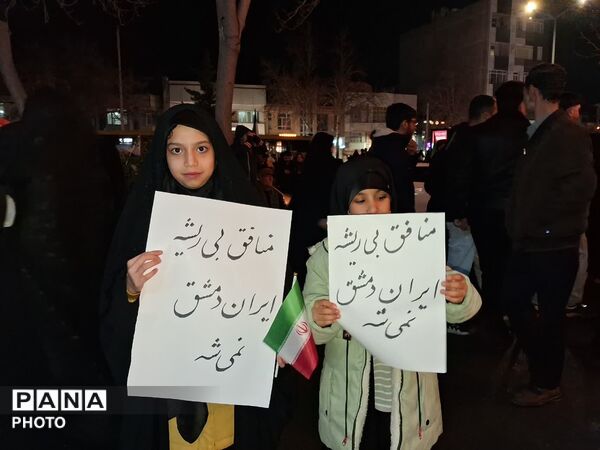 منافق بی ریشه
ایران دمشق
نمی شه
منافق بی ریشه
ایران دمشق
نمی شه
PANA
PHOTO